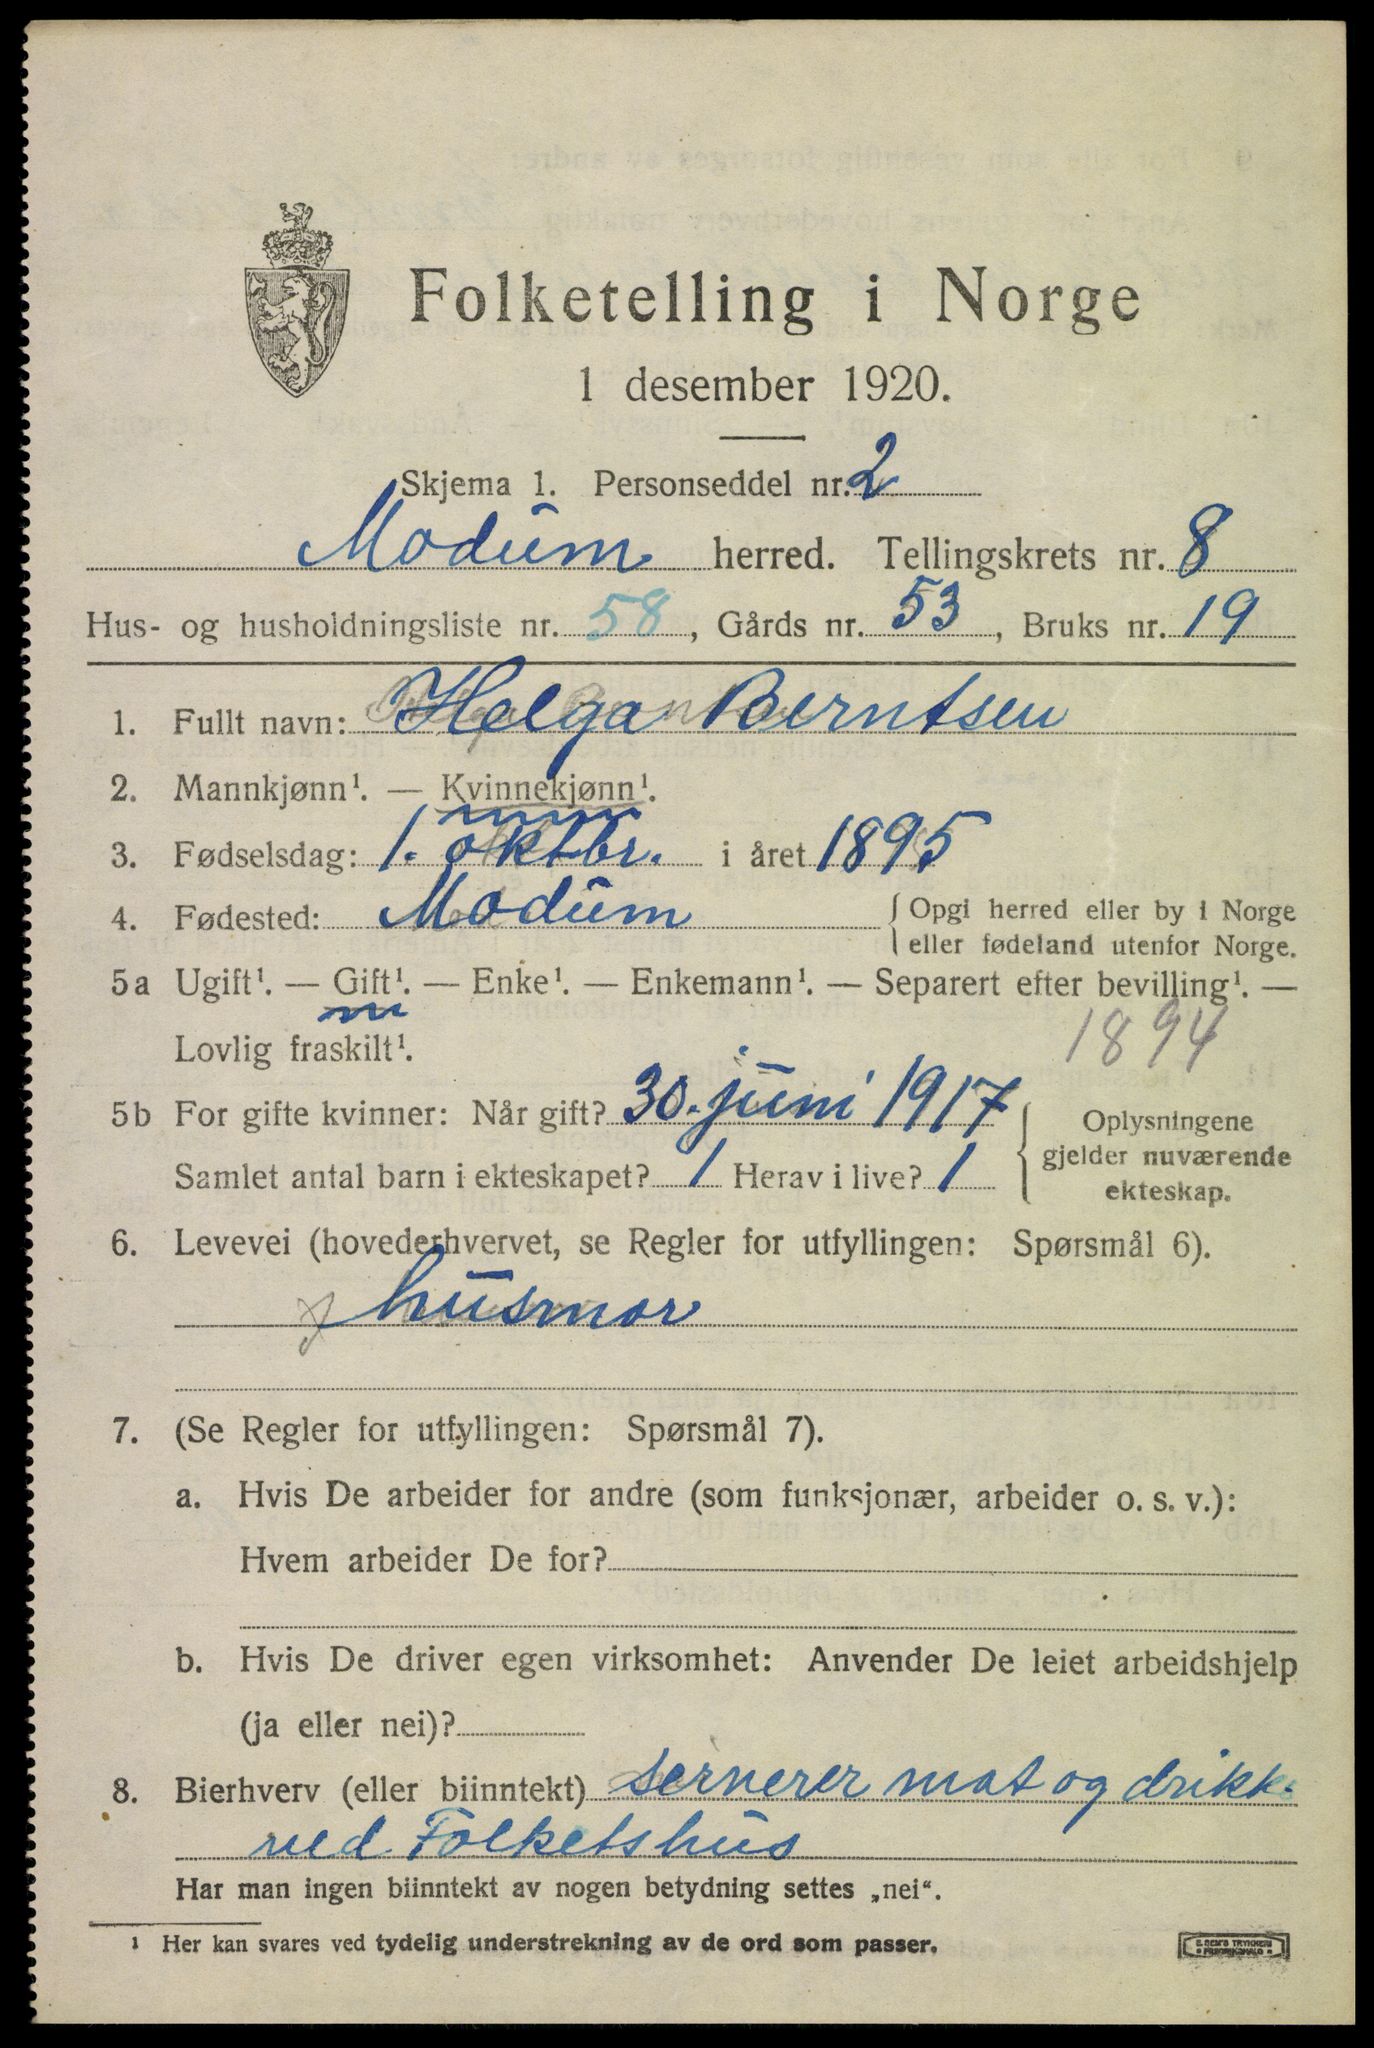 Folketelling i Norge
1 desember 1920.
Skjema 1. Personseddel nr. 2
Modum herred. Tellingskrets nr. 8
Hus- og husholdningsliste nr. 58, Gårds nr. 53, Bruks nr. 19
1. Fullt navn: Helga Berntsen
2. Mannkjønn¹. — Kvinnekjønn¹.
3. Fødselsdag: 1. oktbr. i året 1895
4. Fødested: Modum { Opgi herred eller by i Norge
eller fødeland utenfor Norge.
5a Ugift¹. — Gift¹. — Enke¹. — Enkemann¹. — Separert efter bevilling¹. —
Lovlig fraskilt¹. 1894
5b For gifte kvinner: Når gift? 30. juni 1917
Samlet antal barn i ekteskapet? 1 Herav i live? 1
{ Oplysningene
gjelder nuværende
ekteskap.
6. Levevei (hovederhvervet, se Regler for utfyllingen: Spørsmål 6).
husmor
7. (Se Regler for utfyllingen: Spørsmål 7).
a. Hvis De arbeider for andre (som funksjonær, arbeider o. s. v.):
Hvem arbeider De for?
b. Hvis De driver egen virksomhet: Anvender De leiet arbeidshjelp
(ja eller nei)?
8. Bierhverv (eller biinntekt) serverer mat og drikke
ved Folketshus
Har man ingen biinntekt av nogen betydning settes „nei“.
¹ Her kan svares ved tydelig understrekning av de ord som passer.